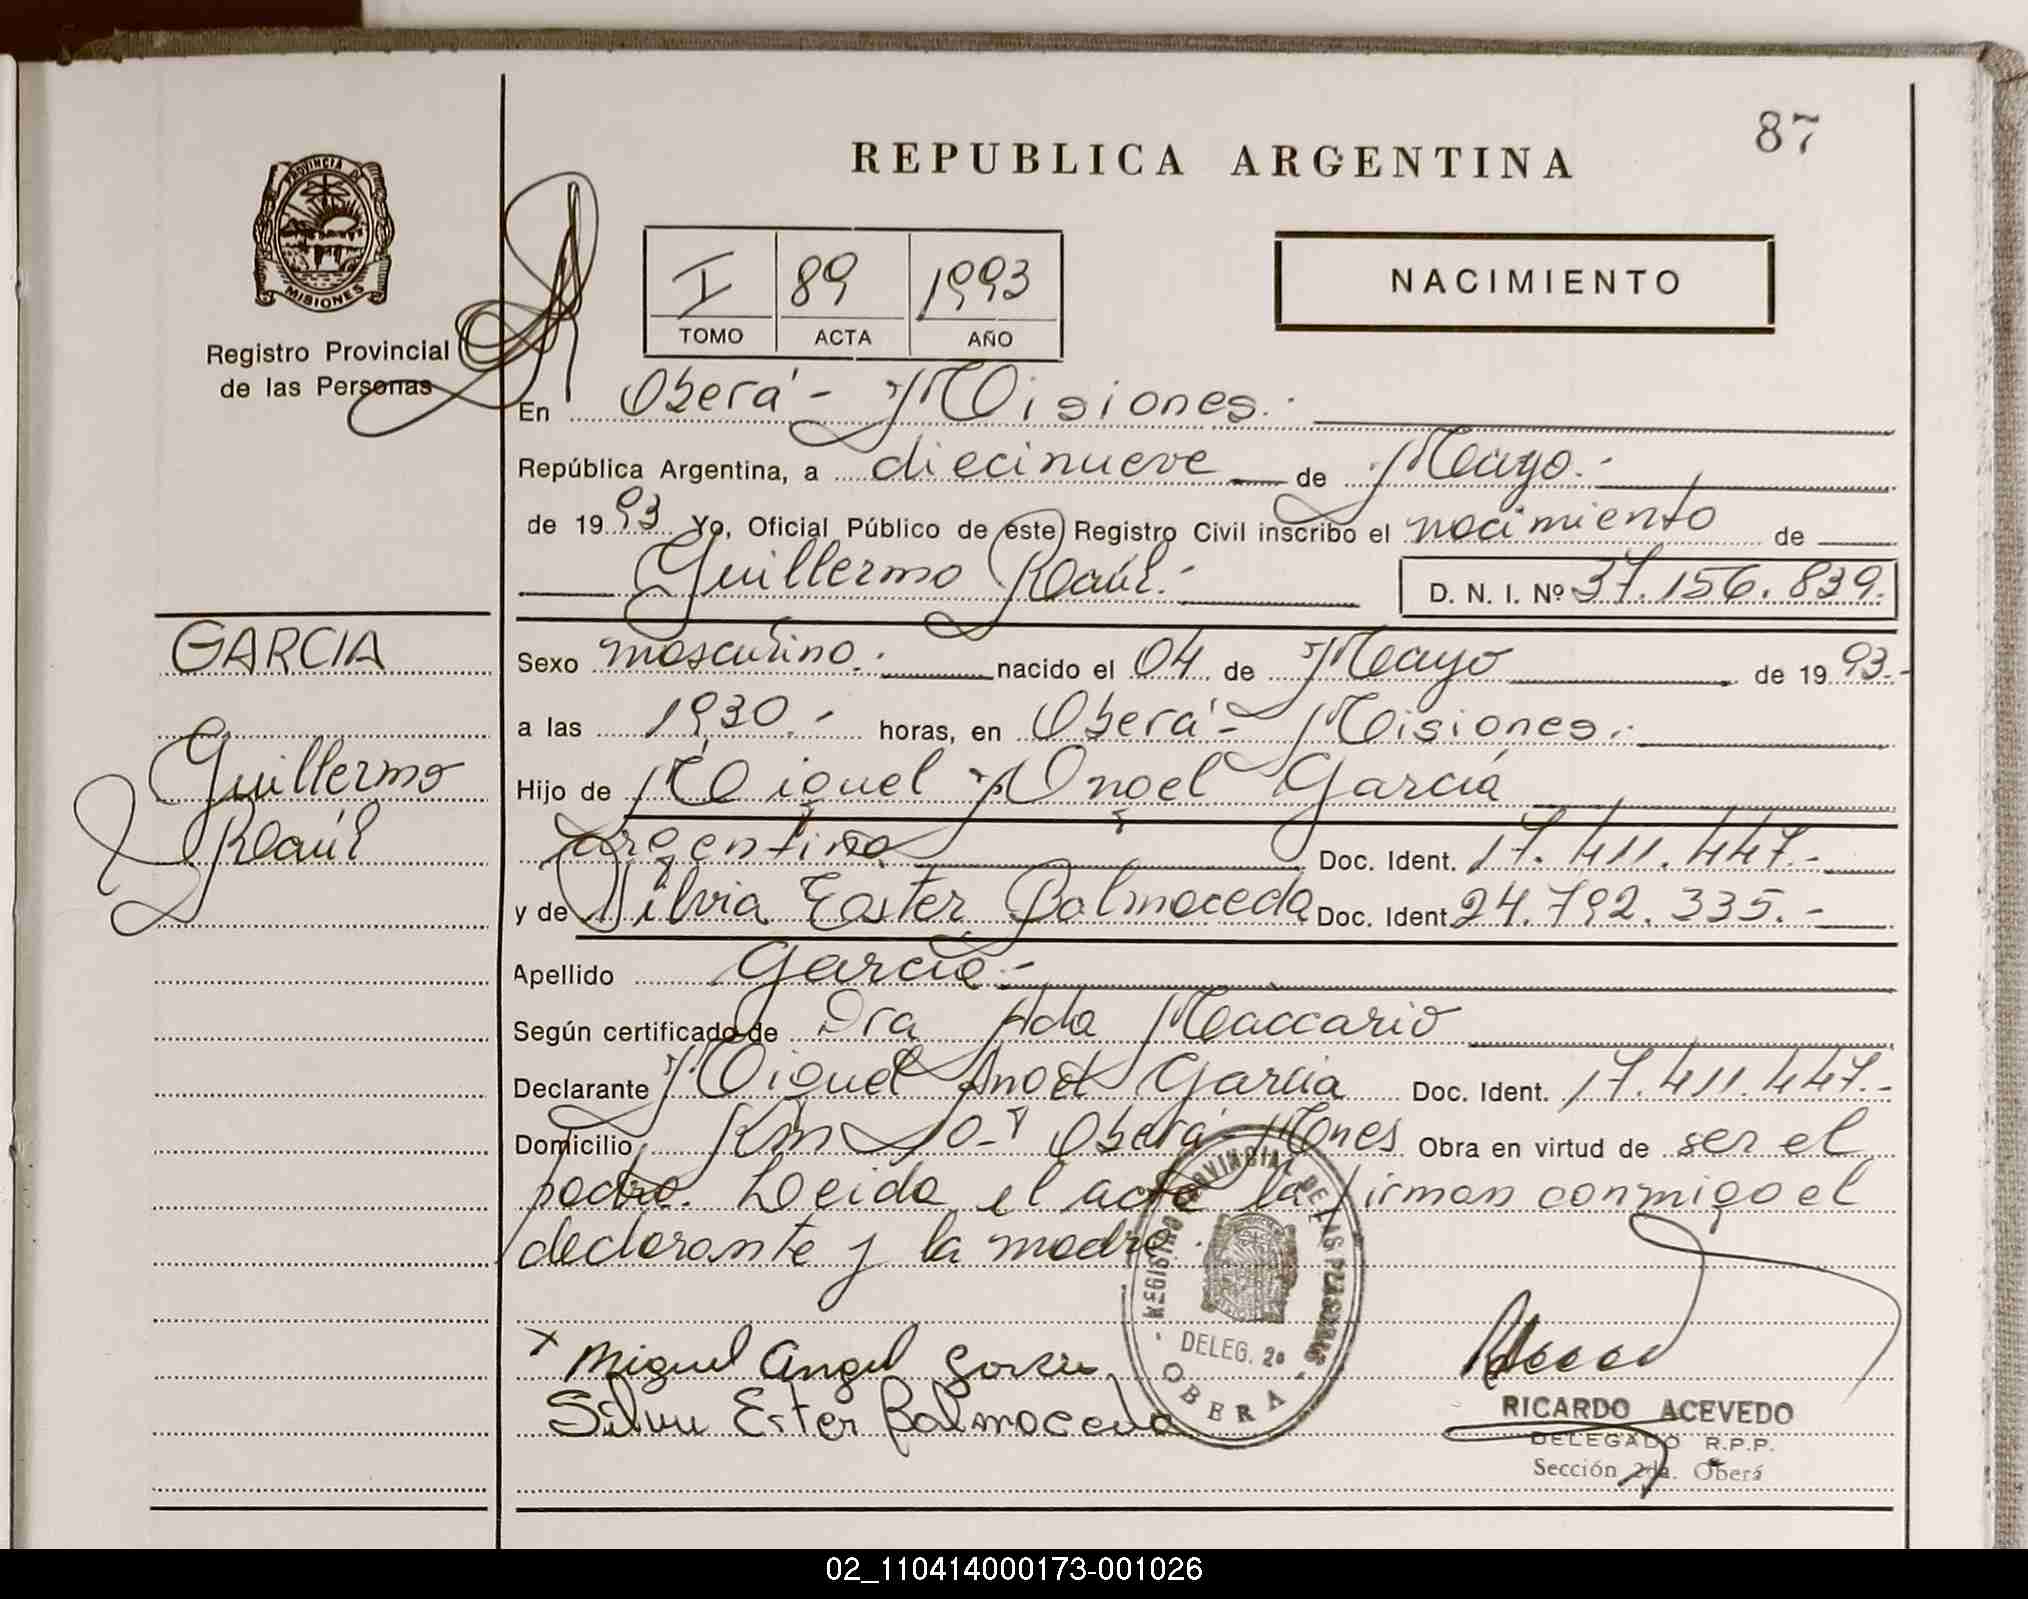 87
REPUBLICA ARGENTINA
PROVINCIA DE
MISIONES
Registro Provincial
de las Personas
I 89 1993
TOMO ACTA AÑO
NACIMIENTO
En Oberá - Misiones.-
República Argentina, a diecinueve de Mayo.-
de 1993 Yo, Oficial Público de este Registro Civil inscribo el nacimiento de
Guillermo Raúl.- D. N. I. Nº 37.156.839.
GARCIA
Guillermo
Raúl
Sexo masculino.- nacido el 04 de Mayo de 1993.-
a las 19,30.- horas, en Oberá - Misiones.-
Hijo de Miguel Angel García
argentino Doc. Ident. 17.411.447.-
y de Silvia Ester Balmaceda Doc. Ident. 24.792.335.-
Apellido García.-
Según certificado de Dra Ada Maccario
Declarante Miguel Angel García Doc. Ident. 17.411.447.-
Domicilio Km 10-Oberá-Mnes Obra en virtud de ser el
padre. Leida el acta la firman conmigo el
declarante y la madre.
REGISTRO PROVINCIAL DE LAS PERSONAS
DELEG. 2a
OBERA
x Miguel Angel Garcia
Silvia Ester Balmaceda
RICARDO ACEVEDO
DELEGADO R.P.P.
Sección 2da. Oberá
02_110414000173-001026